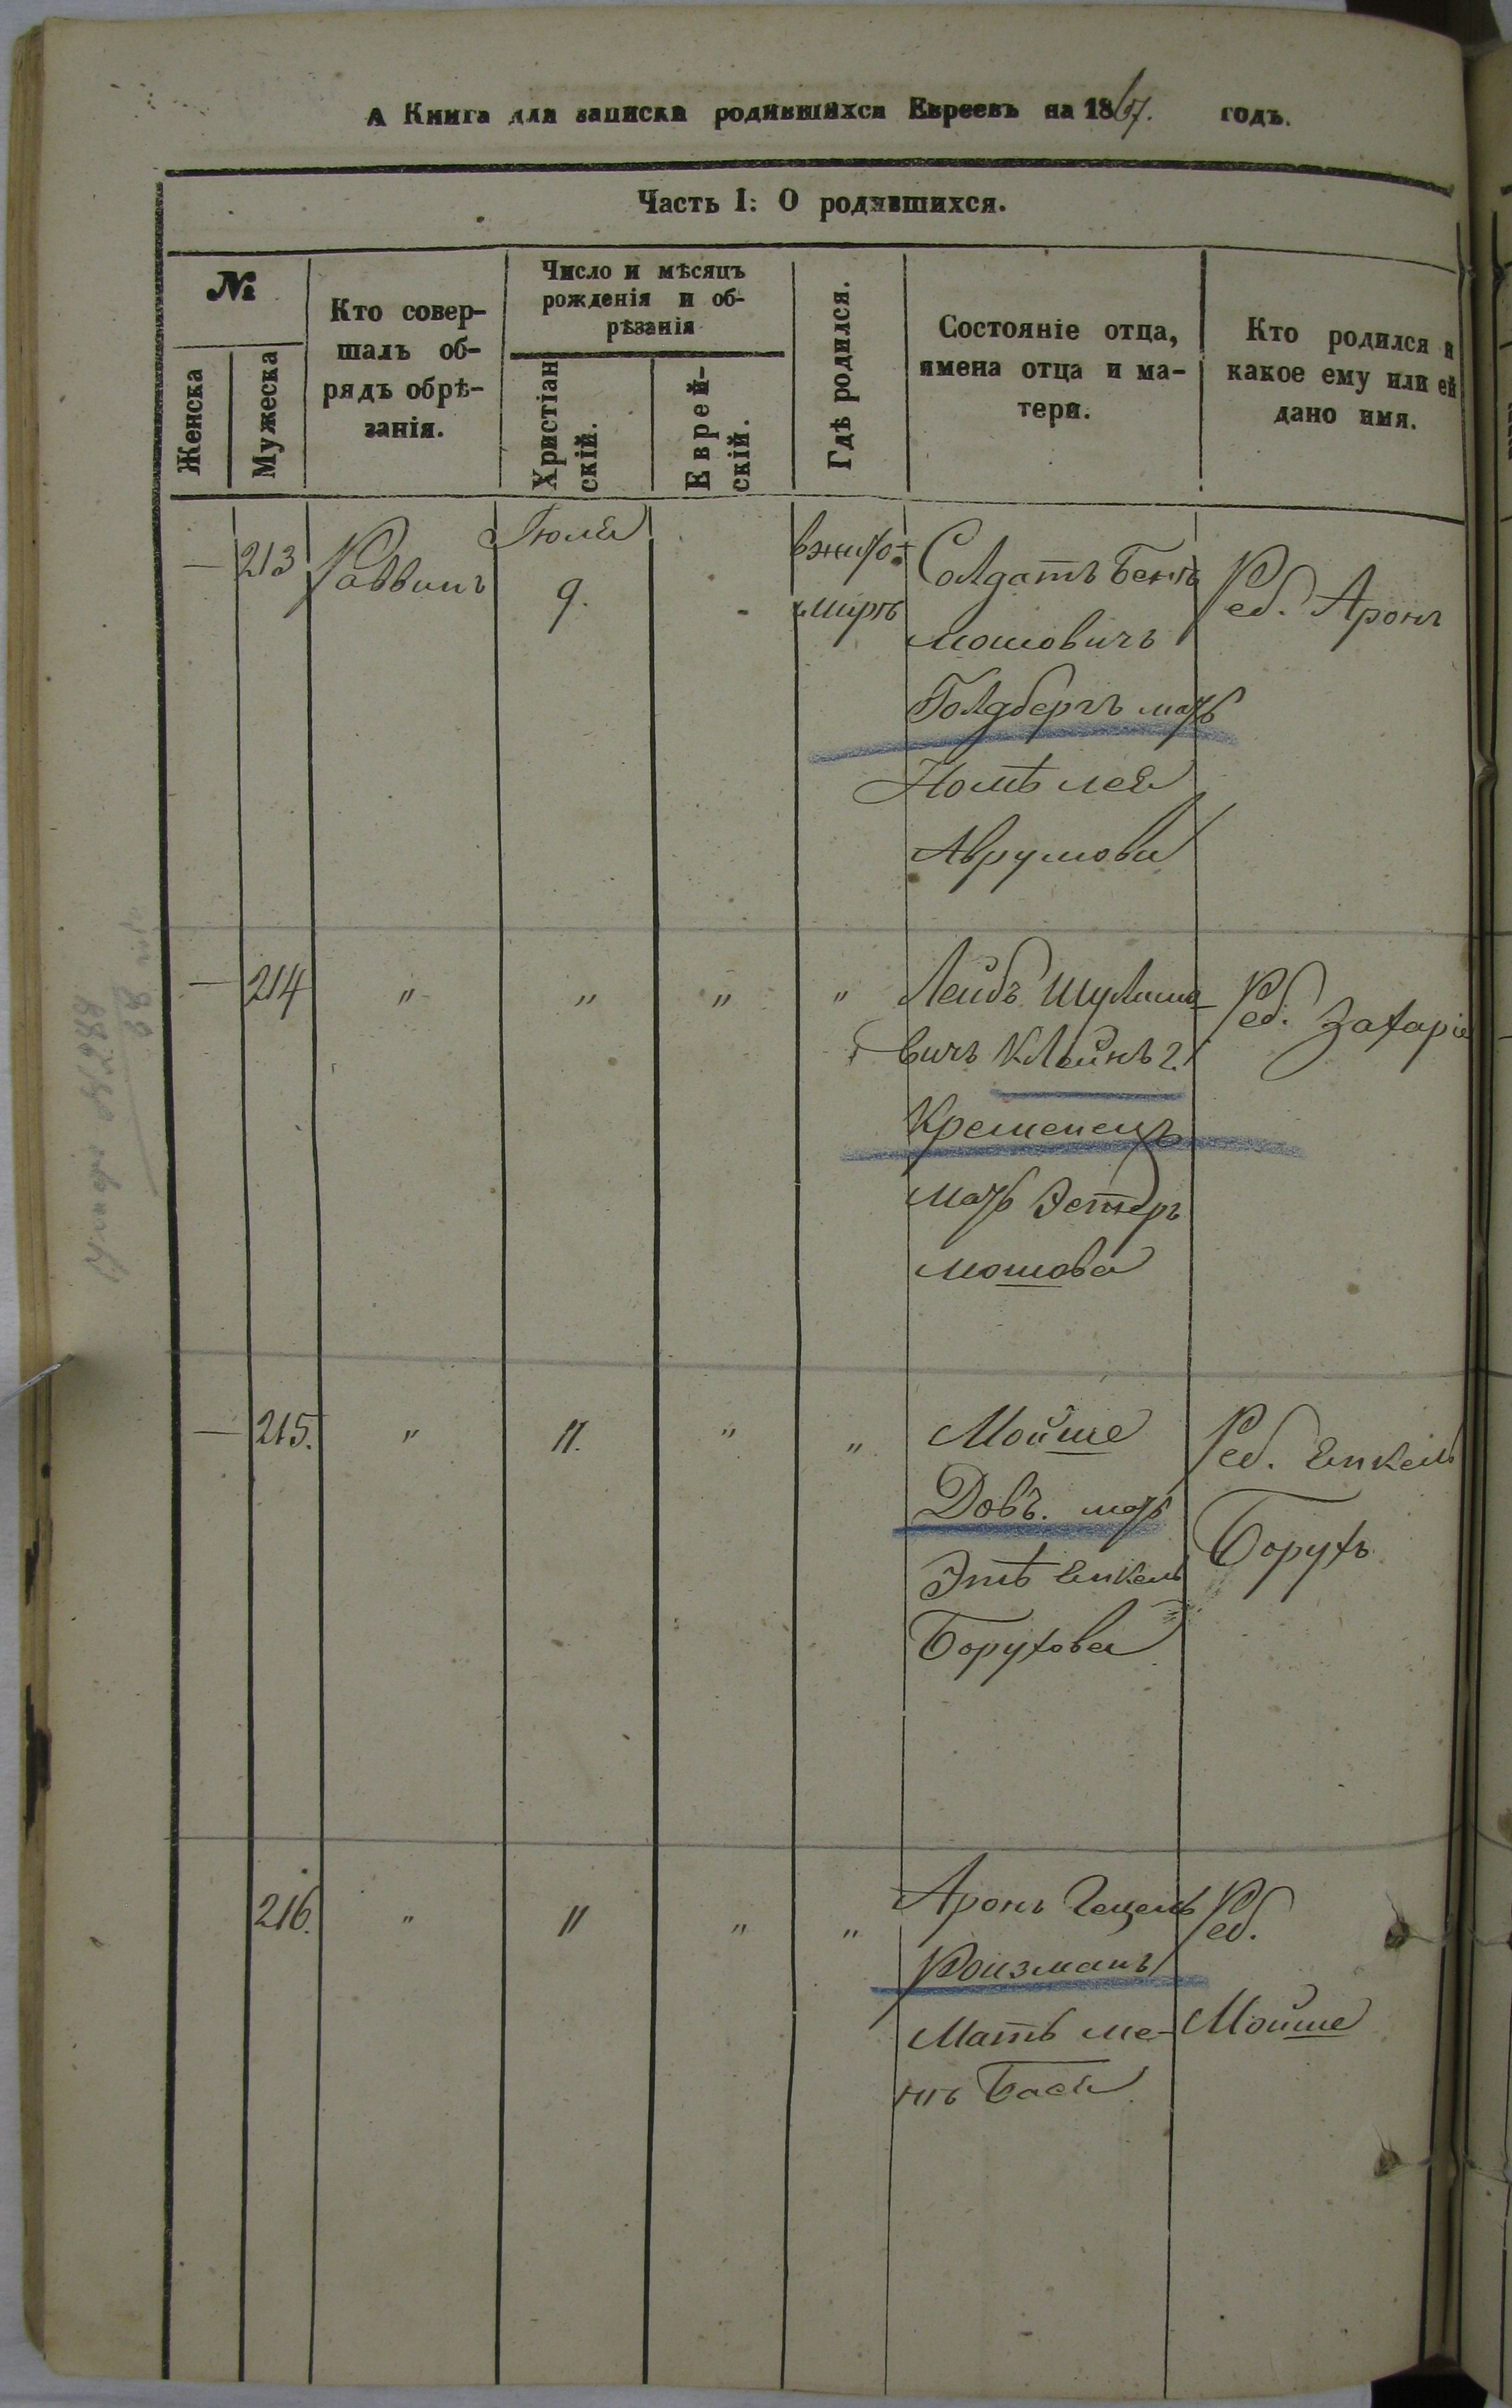 А Книга для записки родившихся Евреевъ на 1867. годъ.
Часть I: О родившихся.
№
Женска
Мужеска
Кто совер-
шалъ об-
рядъ обрѣ-
занія.
Число и мѣсяцъ
рожденія и об-
рѣзанія
Христіан
скій.
Еврей-
скій.
Гдѣ родился.
Состояніе отца,
имена отца и ма-
тери.
Кто родился и
какое ему или ей
дано имя.
— 213 Раввинъ
Іюля
9.
вжито-
мирѣ
Солдатъ Бенъ
мошовичъ
Голдбергъ мать
Номѣ лея
Аврумова
Реб. Аронъ
— 214 " " " "
Лейбъ Шулимо-
вичъ Клейнъ г.
Кременецъ
мать Эстеръ
мошова
Реб. Захарія
— 215. " 11. " "
Мойше
Довъ. мать
Этѣ Енкель
Борухова
Реб. Енкель
Борухъ
216. " 11 " "
Аронъ Гецель
Ройзманъ
Мать ме-
нъ Бася
Реб.
Мойше